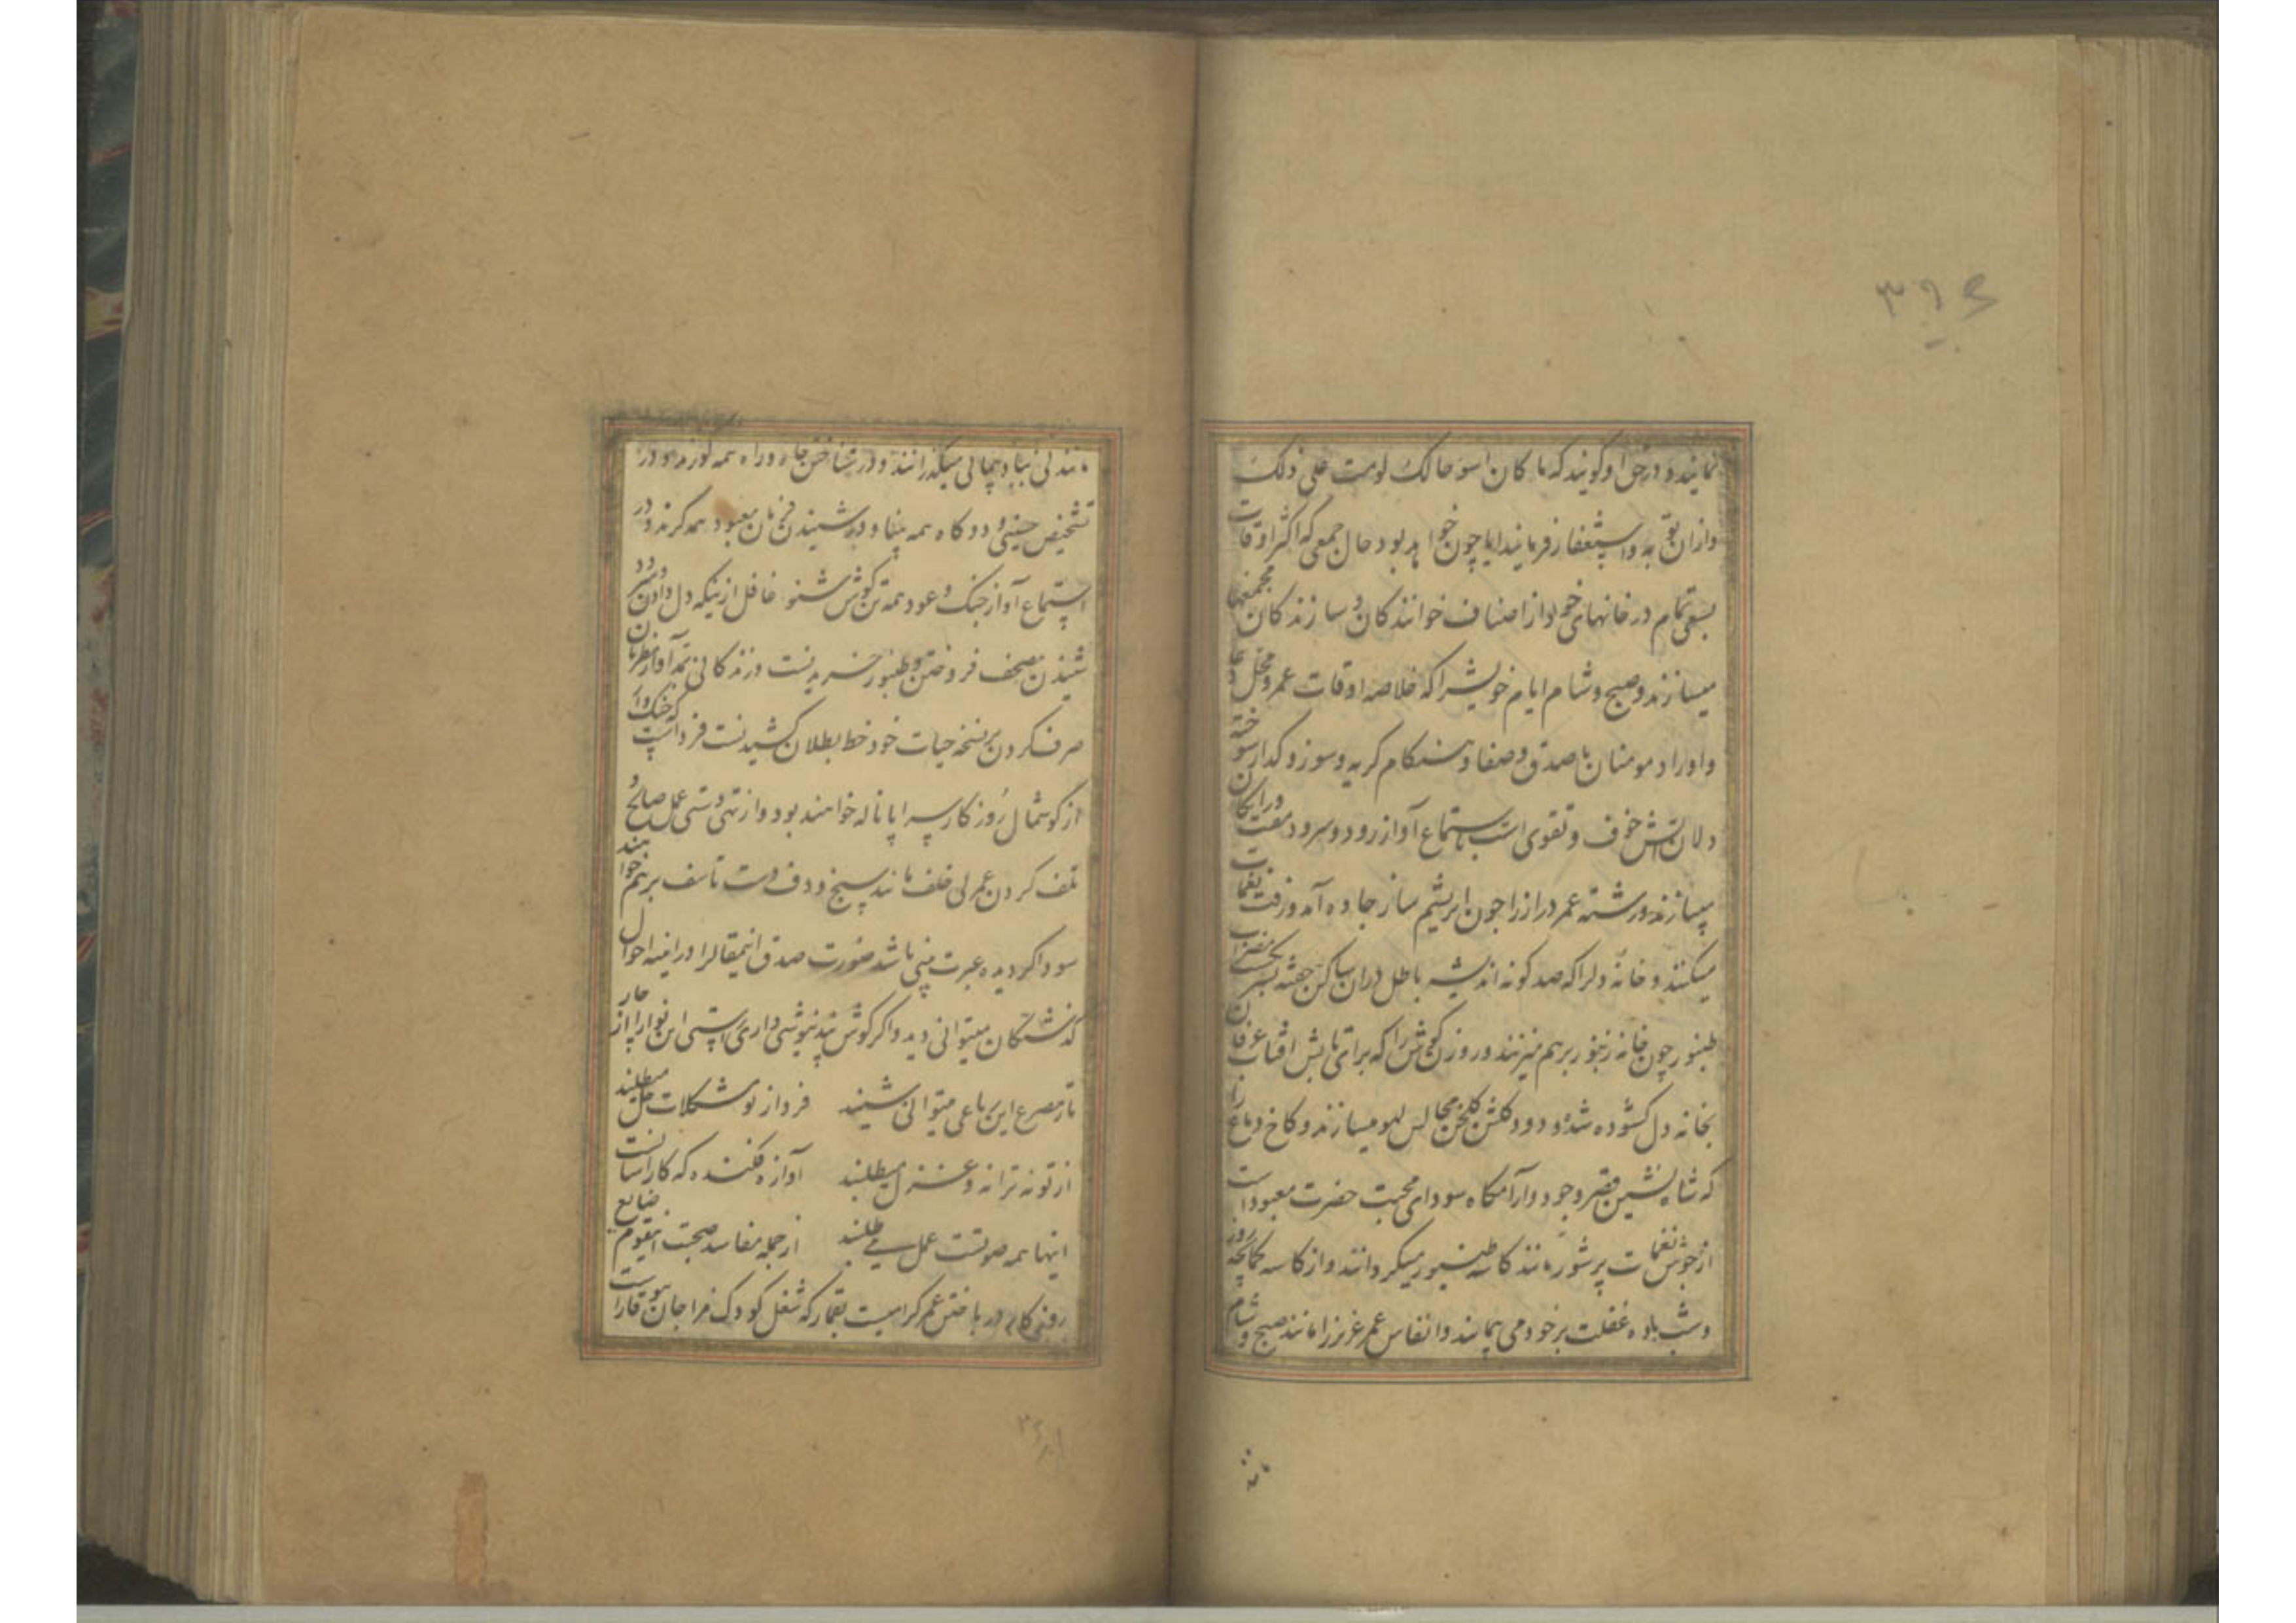 ۳۹۶
نمایند و در حق او گویند که ما کان اسوء حالک لو مت علی ذلک
و از ان بتوبه و استغفار فرمایند ایا چون خواهد بود حال جمعی که اکثر اوقات
بسعی تمام در خانهای خود از اصناف خوانندگان و سازندگان مجمعها
میسازند و صبح و شام ایام خویش را که خلاصه اوقات عمر و محل دعا
و اوراد مومنان با صدق و صفا و هنگام گریه و سوز و گداز سوخته
دلان آتش خوف و تقوی است باستماع آواز رود و سرود مفت و رایکان
میسازند و رشته عمر دراز را چون ابریشم ساز جاده آمد و رفت نغمات
میکنند و خانهٔ دلرا که صد گونه اندیشه باطل در ان ساکن گشته بسر مضراب
طنبور چون خانه زنبور بر هم میزنند و روزن گوش را که برای تابش افتاب عرفان
بخانه دل گشوده شده دودکش گلخن مجالس لهو میسازند و کاخ دماغ را
که شاه نشین قصر وجود و آرامگاه سودای محبت حضرت معبود است
از جوش نغمات پرشور مانند کاسه طنبور میگردانند و از کاسه کمانچه روز
و شب باده غفلت بر خود می پیمایند و انفاس عمر عزیز را مانند صبح و شام
مانند
مانند نی بباد پیمائی میگذرانند و در شناختن چاه و راه همه کورند و در
تشخیص حسینی و دوگاه همه بینا و در شنیدن فرمان معبود همه کرند و در
استماع آواز چنگ و عود همه تن گوش شنو غافل از نیکه دل دادن و سرود
شنیدن مصحف فروختن و طنبور خریدنست و زندگانی بمد آواز مطربان
صرف کردن بر نسخه حیات خود خط بطلان کشیدنست فرداست که چنک وار
از گوشمال روزگار سراپا ناله خواهند بود و از تهی دستی عمل صالح و
تلف کردن عمر بی خلف مانند سنج و دف دست تاسف بر هم خواهند
سود اگر دیده عبرت بینی باشد صورت صدق اینمقالرا در اینه احوال
گذشتگان میتوانی دید و اگر گوش پند نیوشی داری راستی این نوا را از چار
تار مصرع این رباعی میتوانی شنید فردا ز تو مشکلات حل میطلبند
از تو نه ترانه و غزل میطلبند آوازه فکنده که کار اسانست
اینها همه صوتست عمل می طلبند از جمله مفاسد صحبت اینقوم ضایع
روزگار در باختن عمر گرامیست بقمار که شغل کودک مزاجان